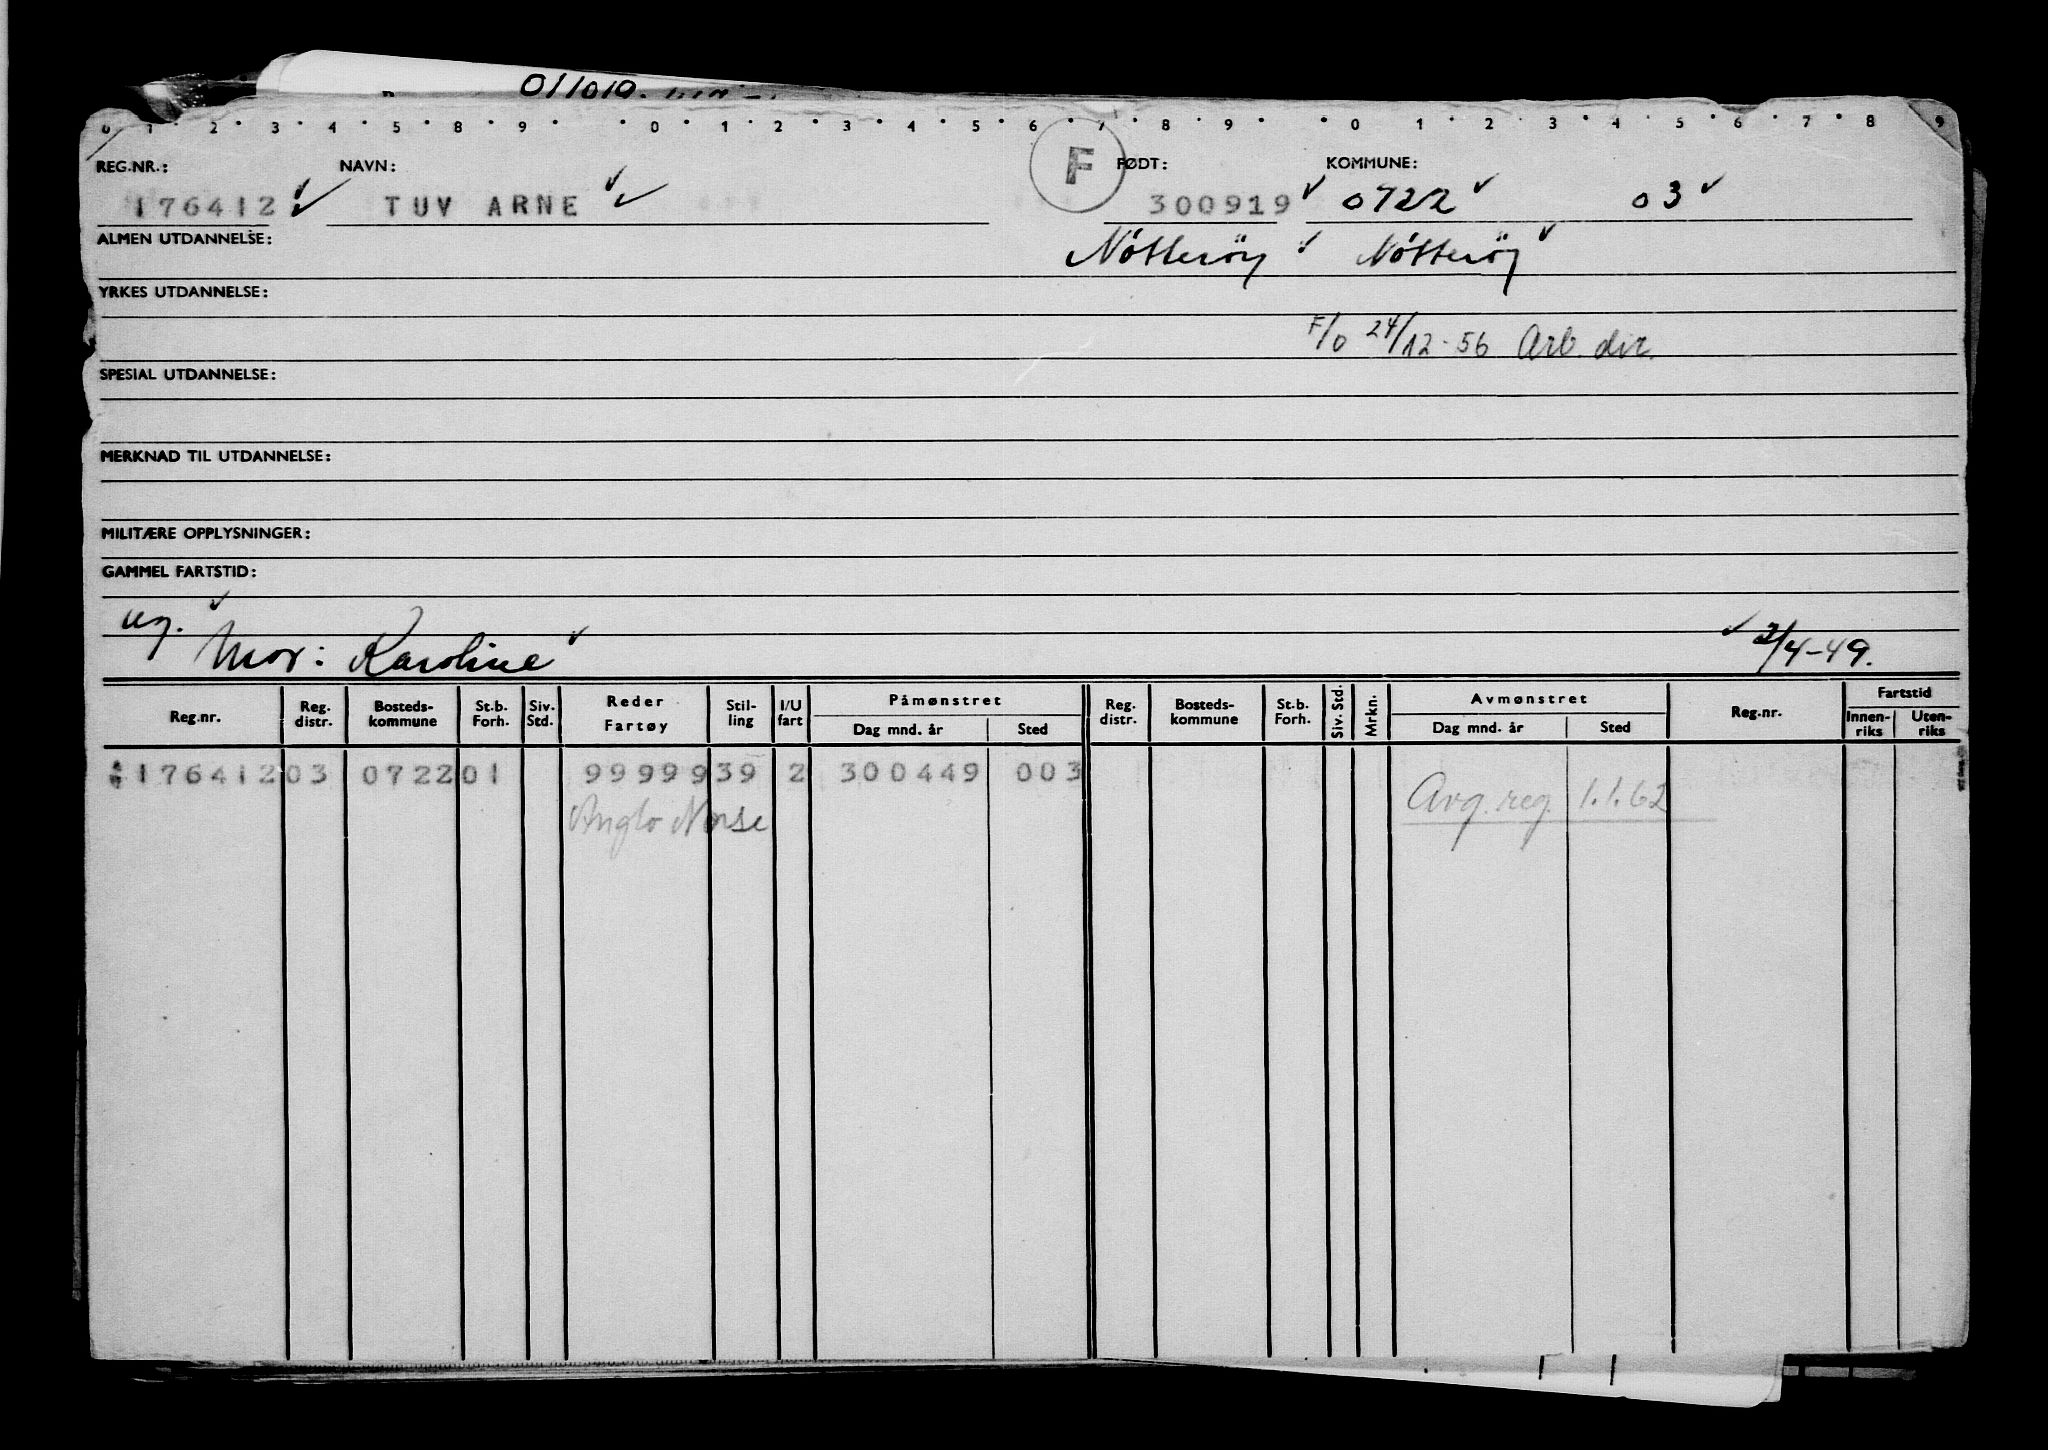 011010.
0 1 2 3 4 5 8 9 0 1 2 3 4 5 6 7 8 9 0 1 2 3 4 5 6 7 8 9
REG.NR.: NAVN: F FØDT: KOMMUNE:
176412 TUV ARNE 300919 0722 03
ALMEN UTDANNELSE: Nötteröy Nötteröy
YRKES UTDANNELSE:
F/0 24/12-56 Arb. dir.
SPESIAL UTDANNELSE:
MERKNAD TIL UTDANNELSE:
MILITÆRE OPPLYSNINGER:
GAMMEL FARTSTID:
ug.
Mor: Karoline 2/4-49.
Reg.nr. Reg. distr. Bosteds-kommune St.b. Forh. Siv. Std. Reder Fartøy Stil-ling I/U fart Påmønstret Dag mnd. år Sted Reg. distr. Bosteds-kommune St.b. Forh. Siv. Std. Mrkn. Avmønstret Dag mnd. år Sted Reg.nr. Fartstid Innen-riks Uten-riks
176412 03 0722 01 99999 39 2 300449 003
Anglo Norse Avg. reg. 1.1.62